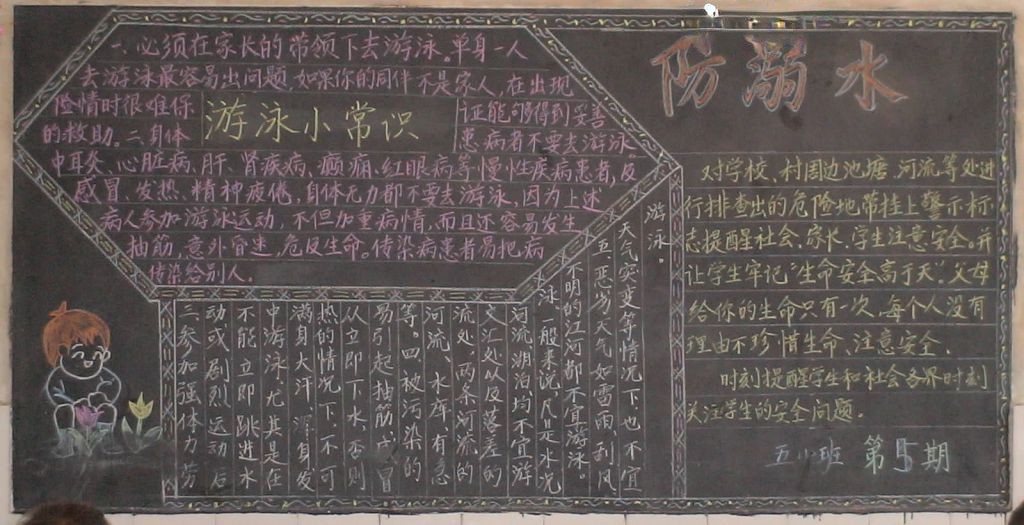 防溺水
游泳小常识
一、必须在家长的带领下去游泳。单身一人
去游泳最容易出问题,如果你的同伴不是家人,在出现
险情时很难保证能够得到妥善
的救助。二.身体患病者不要去游泳。
中耳炎、心脏病、肝、肾疾病、癫痫、红眼病等慢性疾病患者,及
感冒、发热、精神疲倦,身体无力都不要去游泳,因为上述
病人参加游泳运动,不但加重病情,而且还容易发生
抽筋,意外昏迷,危及生命。传染病患者易把病
传染给别人。
三参加强体力劳
动或剧烈运动后
不能立即跳进水
中游泳,尤其是在
满身大汗,浑身发
热的情况下,不可
以立即下水,否则
易引起抽筋,感冒
等。四.被污染的
河流、水库,有急
流处,两条河流的
交汇处以及落差的
河流湖泊均不宜游
泳一般来说,凡是水况
不明的江河都不宜游泳。
五.恶劣天气如雷雨,刮风
天气突变等情况下也不宜
游泳。
对学校、村围边池塘、河流等处进
行排查出的危险地带挂上警示标
志提醒社会、家长、学生注意安全。并
让学生牢记“生命安全高于天”。父母
给你的生命只有一次,每个人没有
理由不珍惜生命、注意安全.
时刻提醒学生和社会各界时刻
关注学生的安全问题。
五小班 第5期